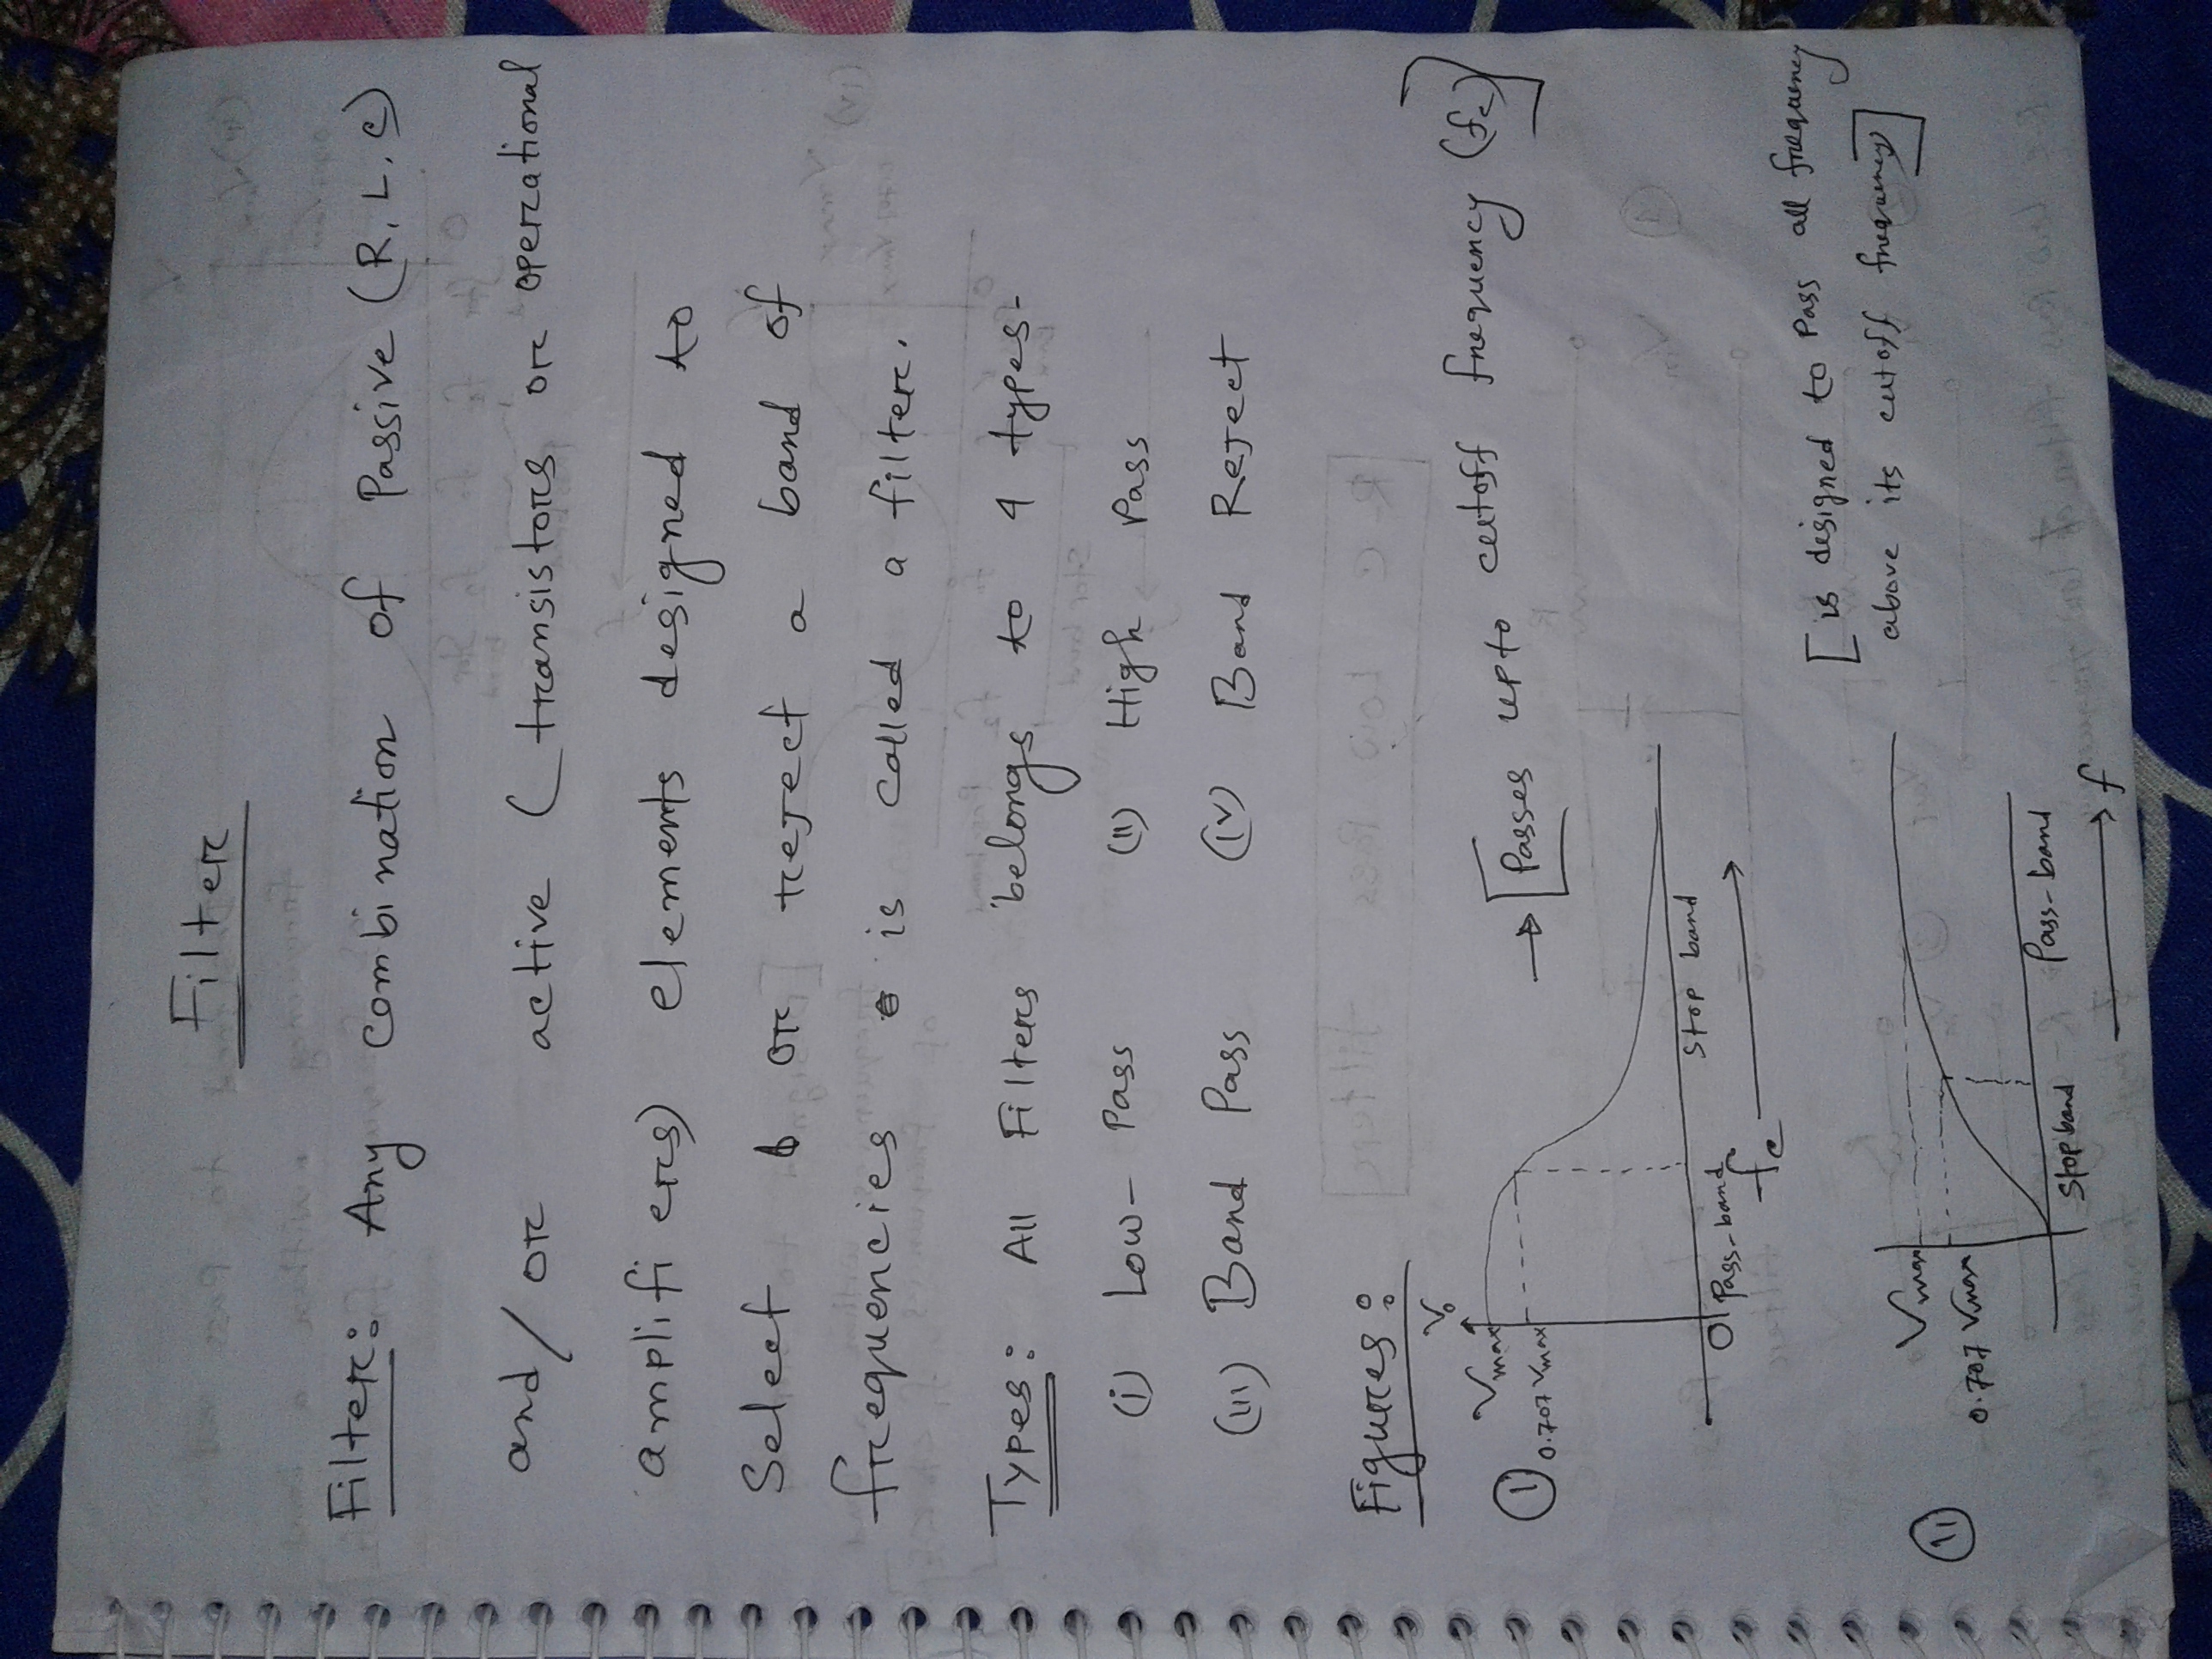 Filter
Filter: Any combination of Passive (R, L, C)
and/or active (transistors or operational
amplifiers) elements designed to
Select or reject a band of
frequencies is called a filter.
Types: All Filters belongs to 4 types-
(i) Low- Pass (ii) High Pass
(iii) Band Pass (iv) Band Reject
Figures:
Vo
Vmax
(i) → [Passes upto cutoff frequency (fc)]
0.707 Vmax
Stop band
0 Pass-band
fc
[is designed to Pass all frequency
above its cutoff frequency]
Vmax
(ii)
0.707 Vmax
Stop band Pass-band
f